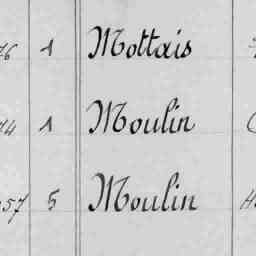 76 1 Mottais
74 1 Moulin
57 5 Moulin